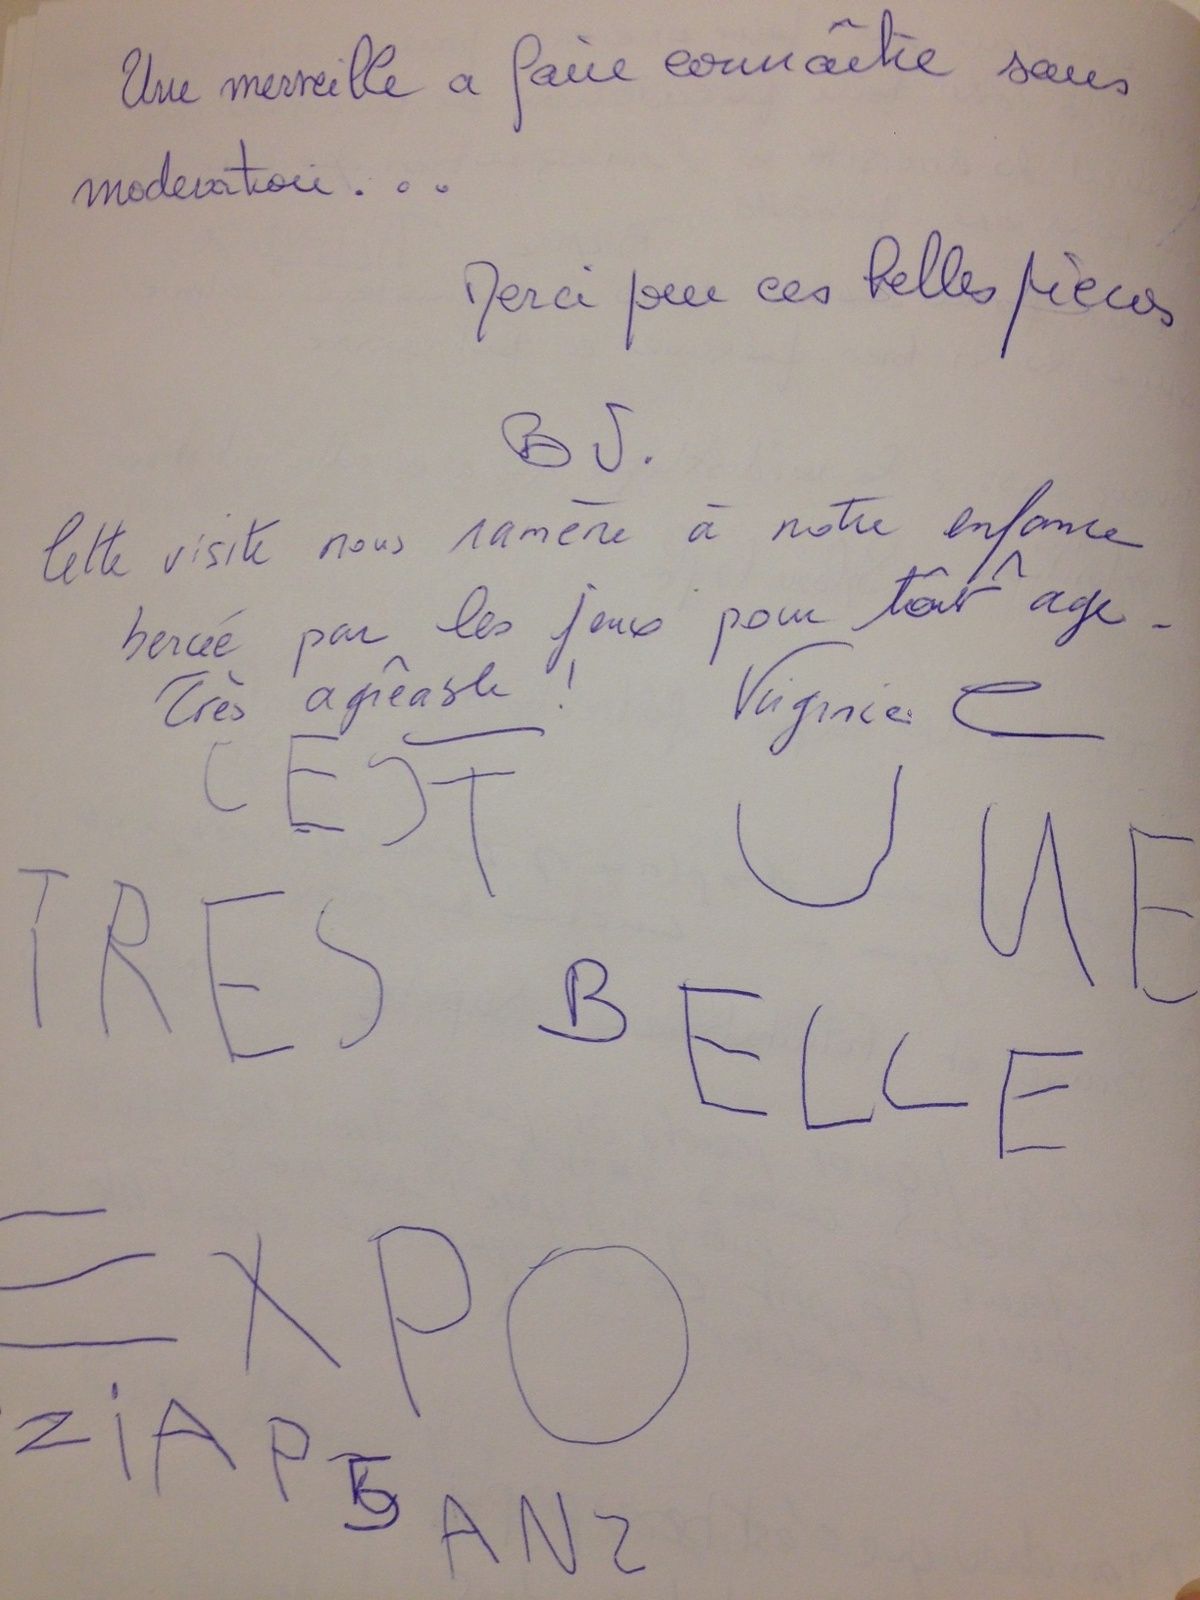 Une merveille a faire connaître sans
moderation...
Merci pour ces belles pièces
BJ.
Cette visite nous ramène à notre enfance
bercée par les jeux pour tout âge.
Très agréable ! Virginie
CEST UNE
TRES BELLE
EXPO
ZiAP 5 ANS